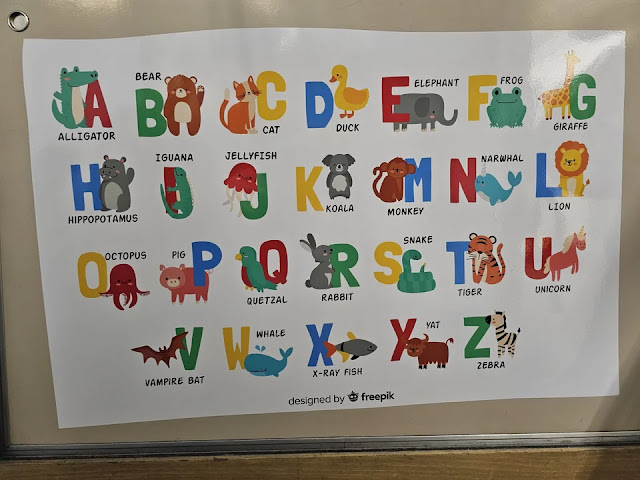 A ALLIGATOR
B BEAR
C CAT
D DUCK
E ELEPHANT
F FROG
G GIRAFFE
H HIPPOPOTAMUS
I IGUANA
J JELLYFISH
K KOALA
M MONKEY
N NARWHAL
L LION
O OCTOPUS
P PIG
Q QUETZAL
R RABBIT
S SNAKE
T TIGER
U UNICORN
V VAMPIRE BAT
W WHALE
X X-RAY FISH
X YAT
Z ZEBRA
designed by freepik